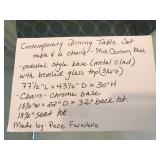 Contemporary Dining Table Set
table & 6 chairs - Mid Century Mod.
-pedestal style base (metal clad)
with beveled glass top (3/4")
77 1/2" L x 43 1/2" D x 30" H
-Chairs - chrome base
18 1/2" W x 22" D x 32" back ht
18 1/2" seat ht
Made by: Pace Furniture